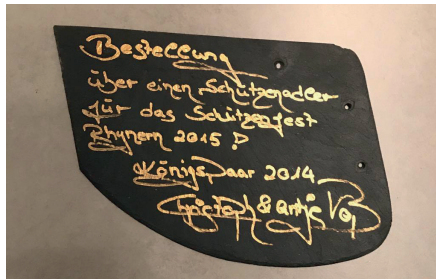 Bestellung
über einen Schützenadler
für das Schützenfest
Rhynern 2015!
Königspaar 2014
Christoph & Antje Voß